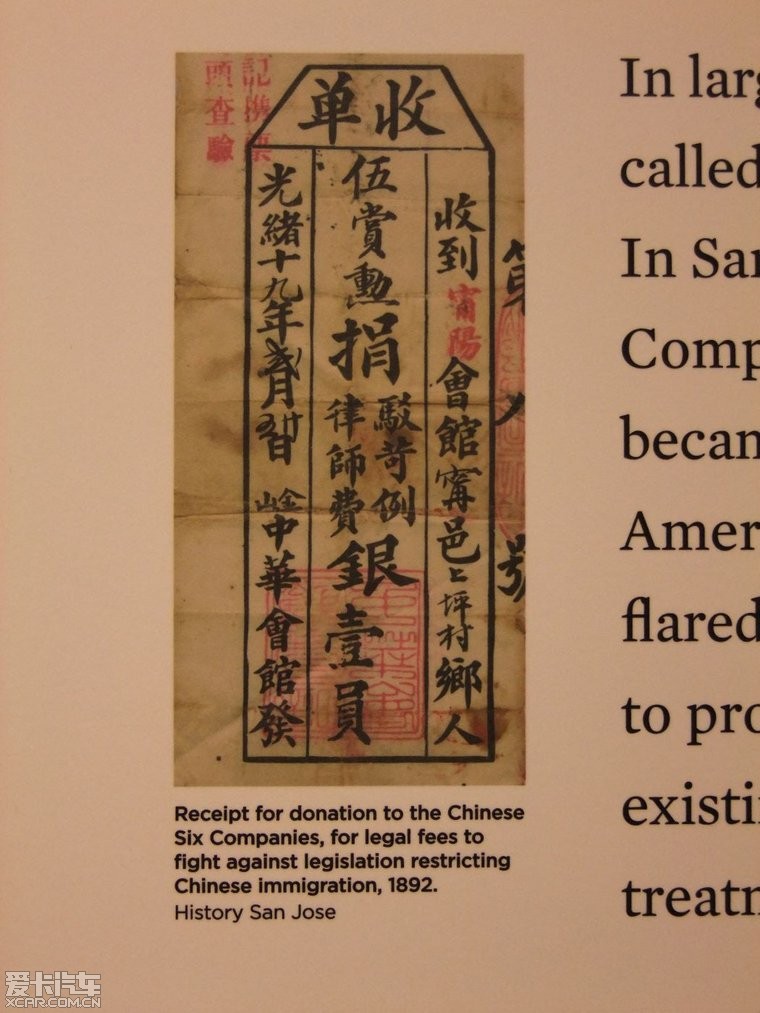 訂記機票
頭查驗
收单
收到甯陽會館甯邑上坪村鄉人
伍賞勳捐駁苛例律師費銀壹員
光緒十九年 月 日金山中華會館發
第
號
Receipt for donation to the Chinese
Six Companies, for legal fees to
fight against legislation restricting
Chinese immigration, 1892.
History San Jose
In larg
called
In Sar
Comp
becan
Amer
flared
to pro
existi
treatn
爱卡汽车
XCAR.COM.CN